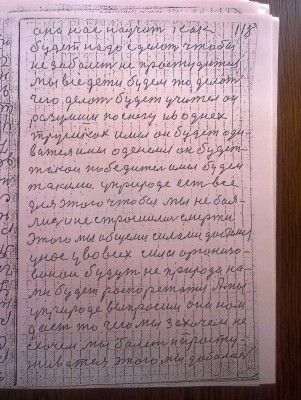 она нас научит как 118
будет надо сделат чтобы
не заболет не простудится
мы все дети будем то делот
чего делот будет учител он
разумши по снегу в одних
трусиках и мы он будет оди-
ватся и мы оденемся он будет
такой победител и мы будем
такими. у природе ест все
для этого чтобы мы не боя-
лис и не строшилис смерти
этого мы общеми силами добемся
у нас у во всех силы организо-
воной будут не природа на-
ми будет роспорежатся А мы
у природе выпросим она нам
даст то чего мы захочем не
схочем мы болет и просту-
живатся этого мы добемся